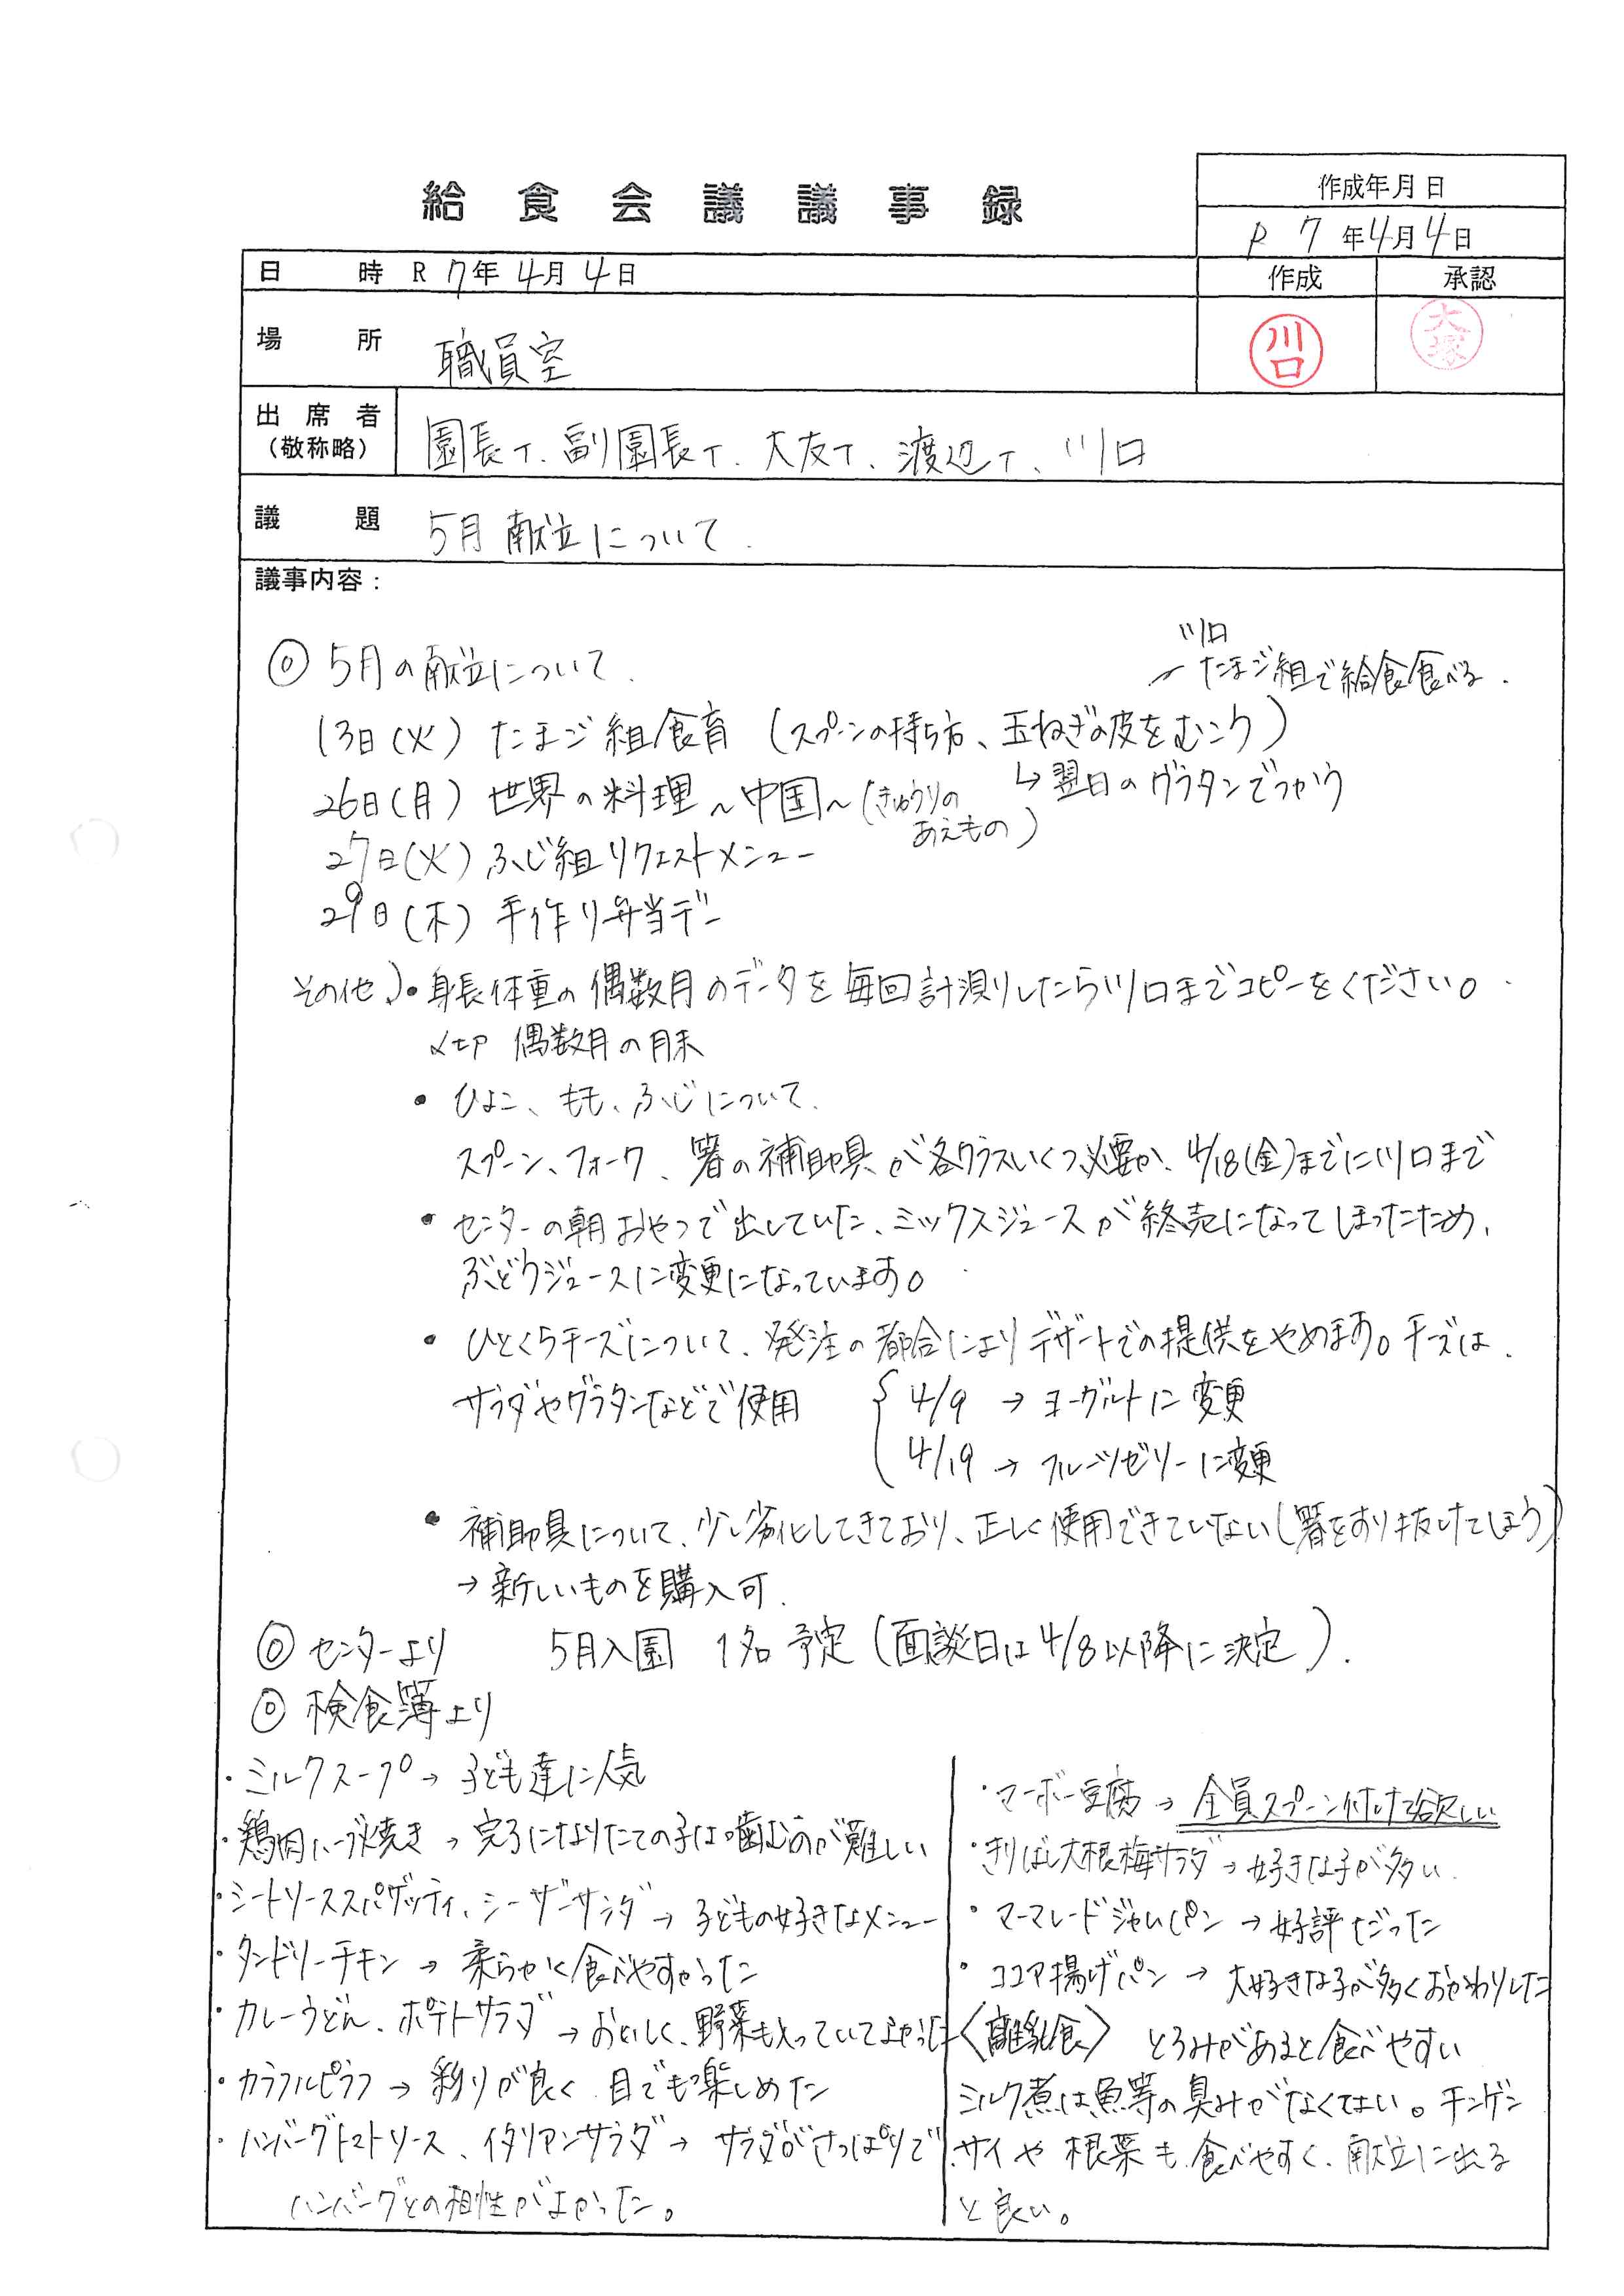 給食会議議事録
作成年月日
R 7年4月4日
日時 R 7年 4月 4日
作成 承認
場所 職員室
川口
大塚
出席者
(敬称略)
園長T、副園長T、大友T、渡辺T、川口
議題 5月献立について
議事内容:
◎ 5月の献立について
川口
たまご組で給食食べる.
13日(火) たまご組食育 (スプーンの持ち方、玉ねぎの皮をむこう)
↳翌日のグラタンでつかう
26日(月) 世界の料理~中国~(きゅうりの
あえもの)
27日(火) ふじ組リクエストメニュー
29日(木) 手作り弁当デー
その他)・身長体重の偶数月のデータを毎回計測したら川口までコピーをください。
〆切 偶数月の月末
・ひよこ、もも、ふじについて.
スプーン、フォーク、箸の補助具が各クラスいくつ必要か、4/18(金)までに川口まで
・センターの朝おやつで出していた、ミックスジュースが終売になってしまったため、
ぶどうジュースに変更になっています。
・ひとくちチーズについて、発注の都合によりデザートでの提供をやめます。チーズは、
サラダやグラタンなどで使用
4/9 → ヨーグルトに変更
4/19 → フルーツゼリーに変更
・補助具について、少し劣化してきており、正しく使用できていない(箸をすり抜けてしまう)
→新しいものを購入可.
◎ センターより 5月入園 1名 予定 (面談日は4/8以降に決定).
◎ 検食簿より
・ミルクスープ→ 子ども達に人気
・鶏肉ハーブ焼き → 完了になりたての子は噛むのが難しい
・ミートソーススパゲッティ、シーザーサラダ → 子どもの好きなメニュー
・タンドリーチキン → 柔らかく食べやすかった
・カレーうどん、ポテトサラダ → おいしく、野菜も入っていてよかった
・カラフルピラフ → 彩りが良く 目でも楽しめた
・ハンバーグトマトソース、イタリアンサラダ → サラダがさっぱりで
ハンバーグとの相性がよかった。
・マーボー豆腐 → 全員スプーン付けて欲しい
・きりぼし大根梅サラダ→好きな子が多い
・マーマレードジャムパン → 好評だった
・ココア揚げパン → 大好きな子が多くおかわりした
〈離乳食〉 とろみがあると食べやすい
ミルク煮は魚等の臭みがなくてよい。チンゲン
サイや根菜も食べやすく、献立に出る
と良い。